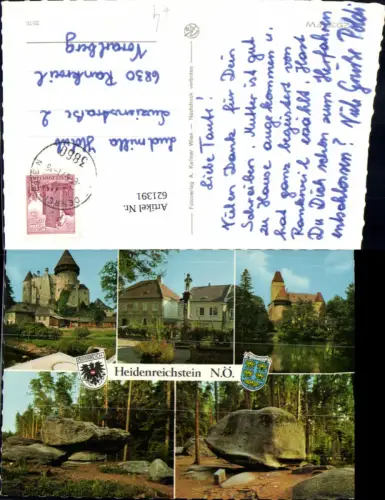 Liebe Tante!
Vielen Dank für Dein
Schreiben, Mutter ist gut
zu Hause angekommen u.
hat ganz begeistert von
Rankweil erzählt. Hast
Du Dich schon zum Herfahren
entschlossen? Viele Grüße Poldi
Fotoverlag A. Kellner Wien - Nachdruck verboten
Artikel Nr.
621391
3860
Ludmilla
Luzienstraße 2
6830 Rankweil
Vorarlberg
Heidenreichstein N.Ö.